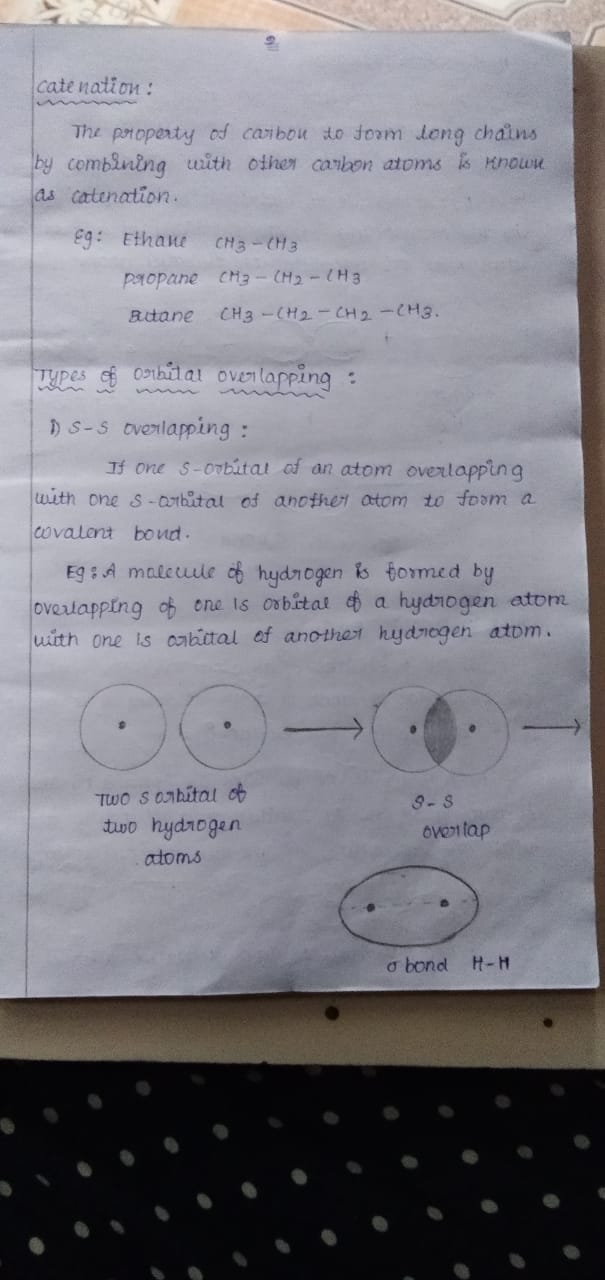 2
catenation :
The property of carbon to form long chains
by combining with other carbon atoms is known
as catenation.
Eg: Ethane CH3-CH3
propane CH3-CH2-CH3
Butane CH3-CH2-CH2-CH3.
Types of orbital overlapping :
1) S-S overlapping :
If one s-orbital of an atom overlapping
with one s-orbital of another atom to form a
covalent bond.
Eg: A molecule of hydrogen is formed by
overlapping of one 1s orbital of a hydrogen atom
with one 1s orbital of another hydrogen atom.
Two s orbital of
two hydrogen
atoms
S-S
overlap
σ bond H-H